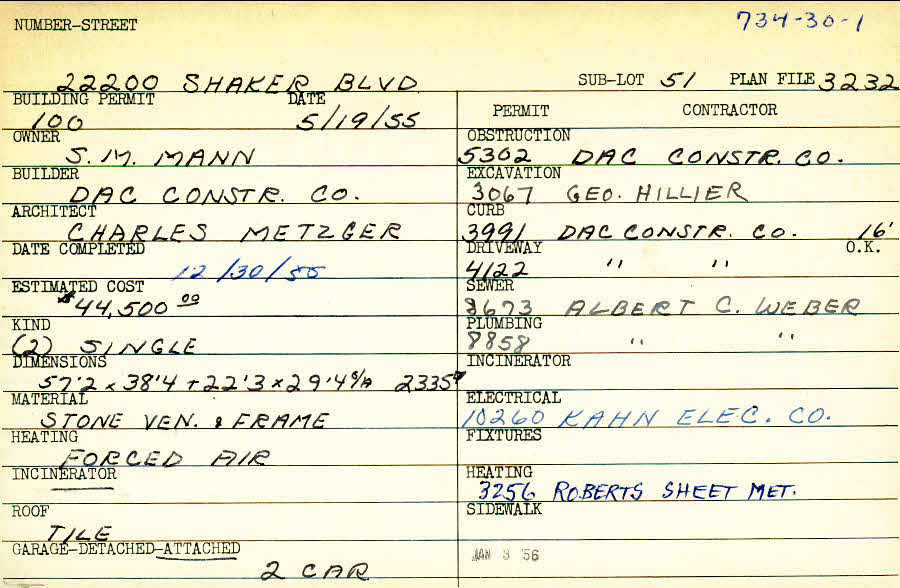 734-30-1
NUMBER-STREET
22200 SHAKER BLVD
SUB-LOT 51 PLAN FILE 3232
BUILDING PERMIT DATE
100 5/19/55
OWNER
S. M. MANN
BUILDER
DAC CONSTR. CO.
ARCHITECT
CHARLES METZGER
DATE COMPLETED
12/30/55
ESTIMATED COST
$44,500 00
KIND
(2) SINGLE
DIMENSIONS
57'2 x 38'4 + 22'3 x 29'4 S/A 2335
MATERIAL
STONE VEN. & FRAME
HEATING
FORCED AIR
INCINERATOR
ROOF
TILE
GARAGE-DETACHED-ATTACHED
2 CAR
PERMIT CONTRACTOR
OBSTRUCTION
5302 DAC CONSTR. CO.
EXCAVATION
3067 GEO. HILLIER
CURB
3991 DAC CONSTR. CO. 16'
DRIVEWAY O.K.
4122 " "
SEWER
8673 ALBERT C. WEBER
PLUMBING
8858 " "
INCINERATOR
ELECTRICAL
10260 KAHN ELEC. CO.
FIXTURES
HEATING
3256 ROBERTS SHEET MET.
SIDEWALK
JAN 3 56